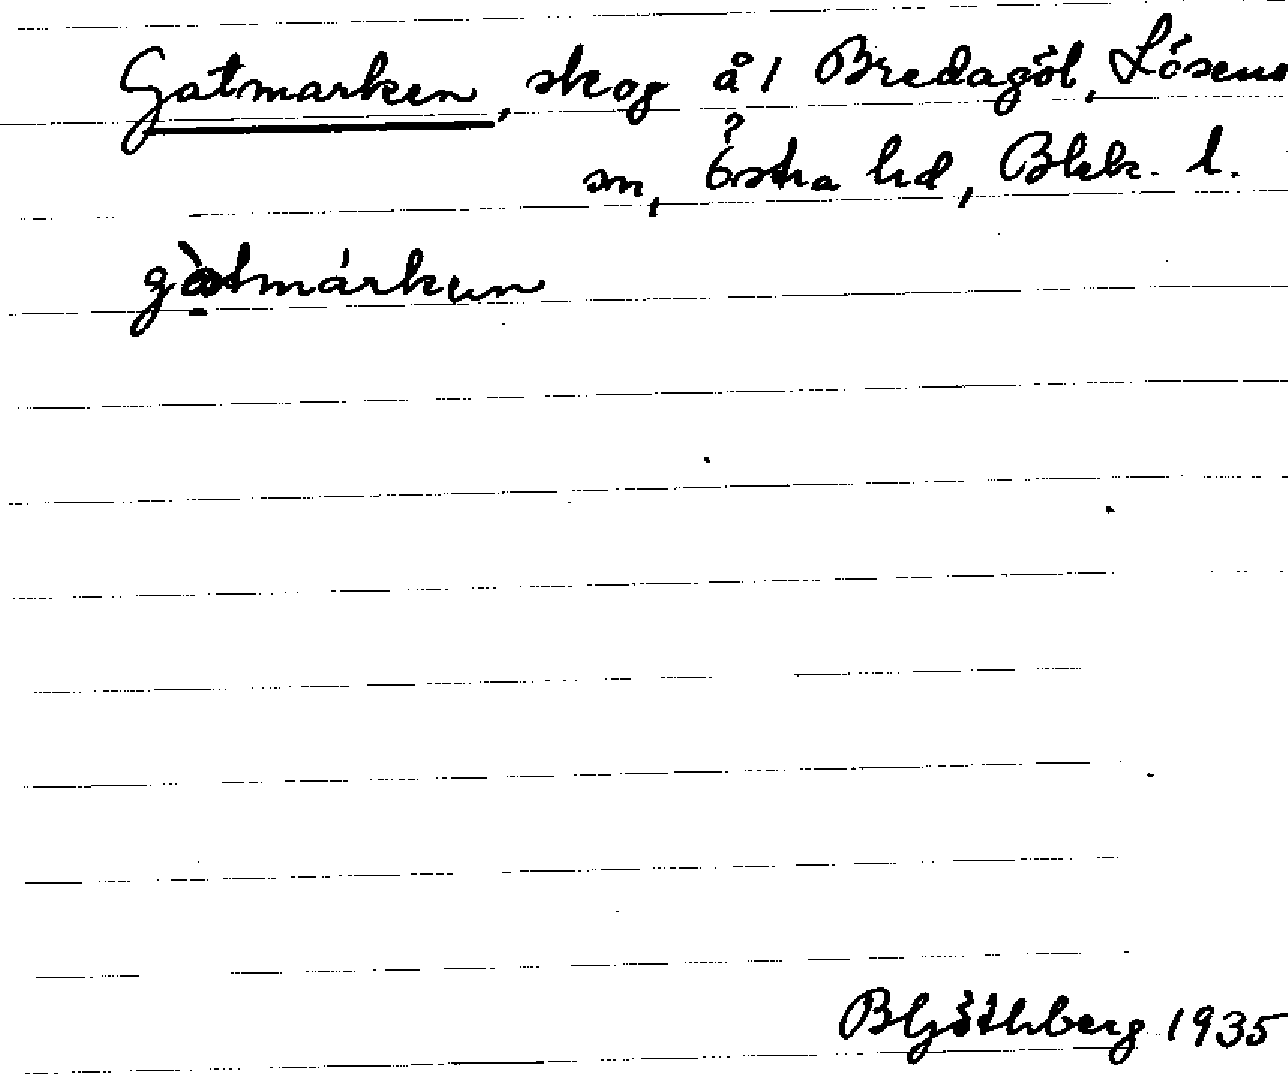 Gatmarken, skog å 1 Bredagöl, Lösens
sn, Östra hd, Blek. l.
gàtmárken
B Göthberg 1935